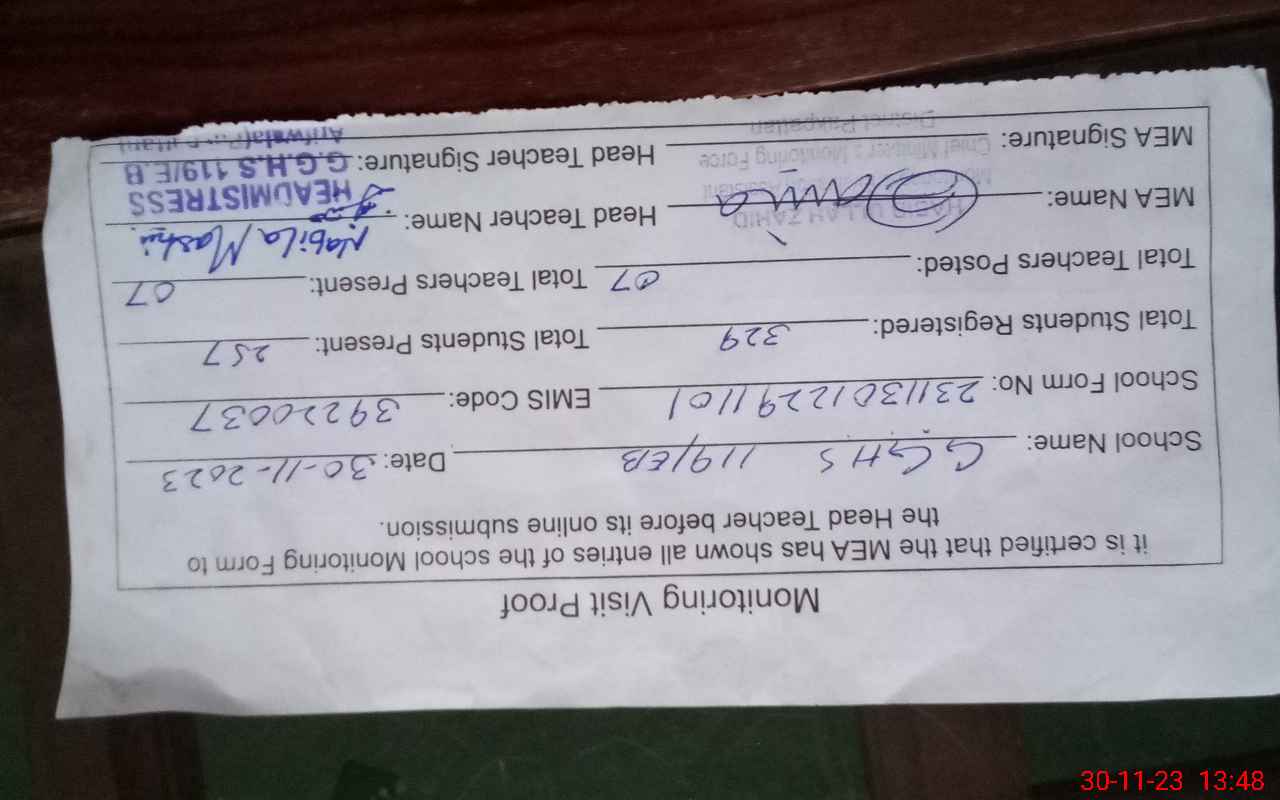 Monitoring Visit Proof
it is certified that the MEA has shown all entries of the school Monitoring Form to
the Head Teacher before its online submission.
School Name: GGHS 119/EB Date: 30-11-2023
School Form No: 23113012291101 EMIS Code: 39220037
Total Students Registered: 329 Total Students Present: 257
Total Teachers Posted: 07 Total Teachers Present: 07
MEA Name: Head Teacher Name: Nabila
HABIB ULLAH ZAHID
HEADMISTRESS
Chief Minister's Monitoring Force
MEA Signature: Head Teacher Signature: G.G.H.S 119/E.B
District Pakpattan
Arifwala
30-11-23 13:48